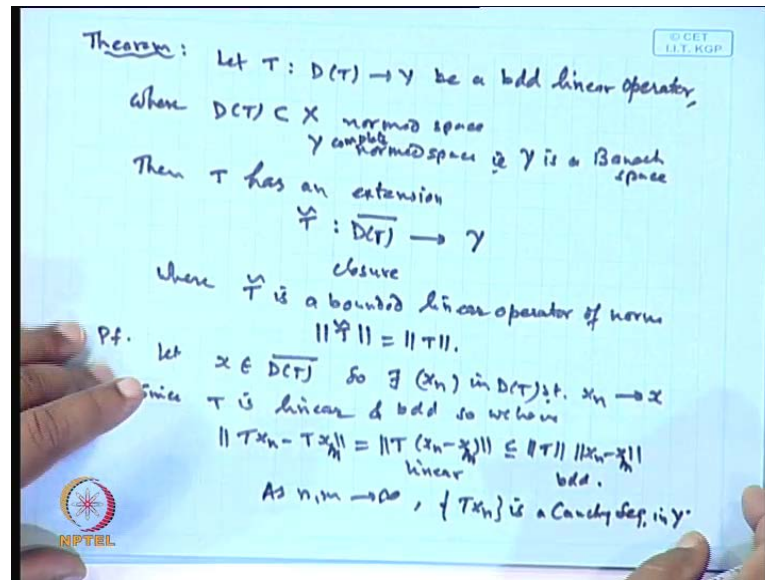 © CET
I.I.T. KGP
Theorem : Let T : D(T) → Y be a bdd linear operator,
where D(T) ⊂ X normed space
Y complete normed space ie Y is a Banach space
Then T has an extension
T̃ : \overline{D(T)} → Y
closure
where T̃ is a bounded linear operator of norm
||T̃|| = ||T||.
Pf. Let x ∈ \overline{D(T)} so ∃ (xn) in D(T) s.t. xn → x
Since T is linear & bdd so we have
||Txn - Txm|| = ||T(xn-xm)|| ≤ ||T|| ||xn-xm||
linear bdd.
As n,m → ∞, {Txn} is a Cauchy Seq. in Y.
NPTEL